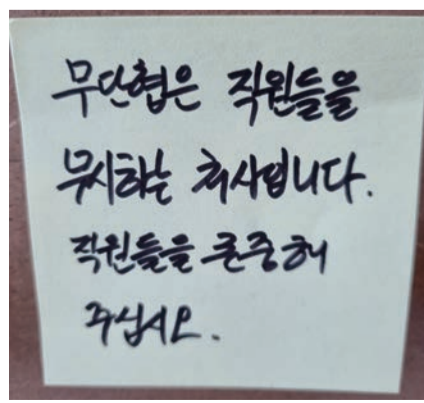 무단협은 직원들을
무시하는 처사입니다.
직원들을 존중해
주십시오.